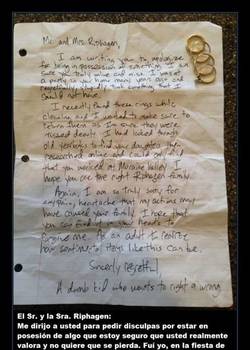 Mr. and Mrs. Riphagen,
I am writing you to apologize
for being in possession of something I am
sure you truly value and miss. I was at
a party in your home many years ago and
regretfully stole something that I
should not have.
I recently found these rings while
cleaning and I wanted to make sure to
return them as I'm sure they were
missed dearly. I had looked through
old yearbooks to find you daughter then
researched online and could
that you worked at Moraine Valley. I
hope you are the right Riphagen family.
Again, I am so truly sorry for
any pain, heartache that my actions may
have caused your family. I hope that
you can find it in your hearts to
forgive me. As an adult I realize
how sentimental items like this can be.
Sincerly regretful,
A dumb kid who wants to right a wrong
El Sr. y la Sra. Riphagen:
Me dirijo a usted para pedir disculpas por estar en
posesión de algo que estoy seguro que usted realmente
valora y no quiere que se pierda. Fui yo, en la fiesta de